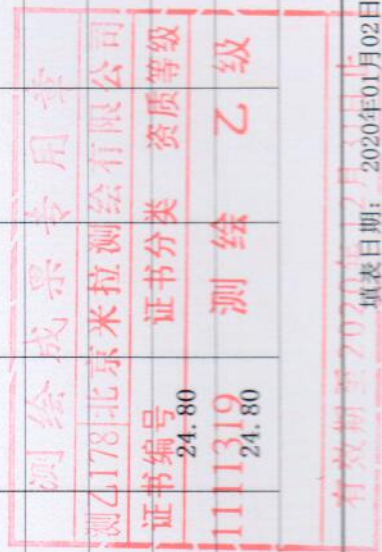 测绘成果专用章
测乙178 北京米拉测绘有限公司
证书编号 证书分类 资质等级
24.80
11111319 测绘 乙级
24.80
有效期至2020年
填表日期: 2020年01月02日